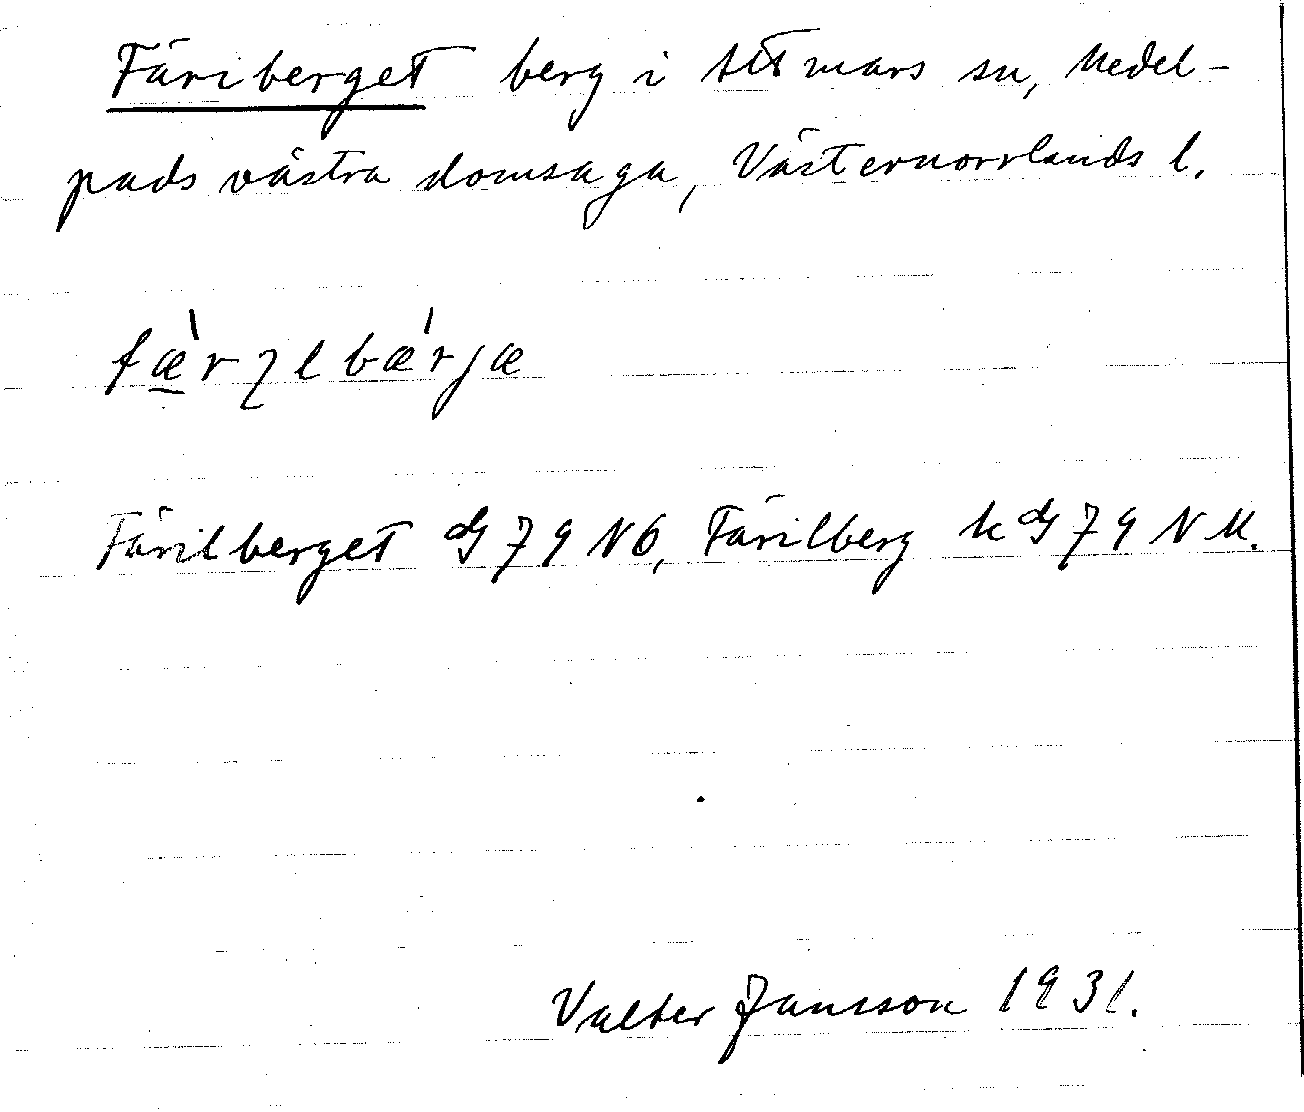 Färiberget berg i Attmars sn, Medel-
pads västra domsaga, Västernorrlands l.
fæ̀rɿlbǽrjæ
Färilberget dG 79 NÖ, Färilberg k dG 79 NU.
Valter Jansson 1931.